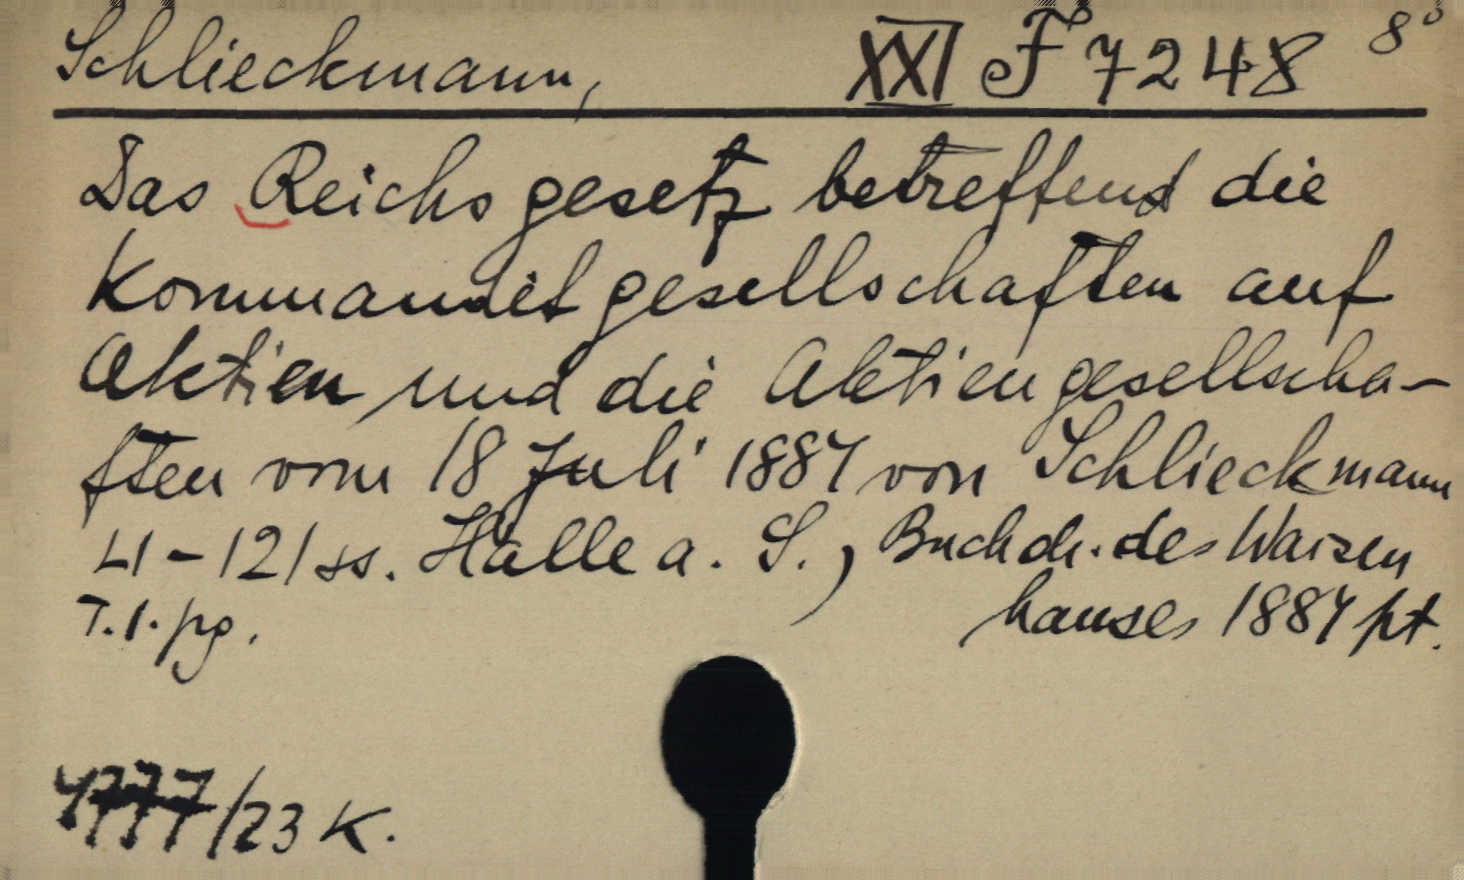 Schlieckmann, XXI F 7248 8°
Das Reichsgesetz betreffend die
Kommanditgesellschaften auf
Aktien und die Aktiengesellscha-
ften vom 18 Juli 1884 von Schlieckmann
LI-121 ss. Halle a. S., Buchdr. des Waisen
T.1.pg. hauses 1884 pt.
4777/23 K.